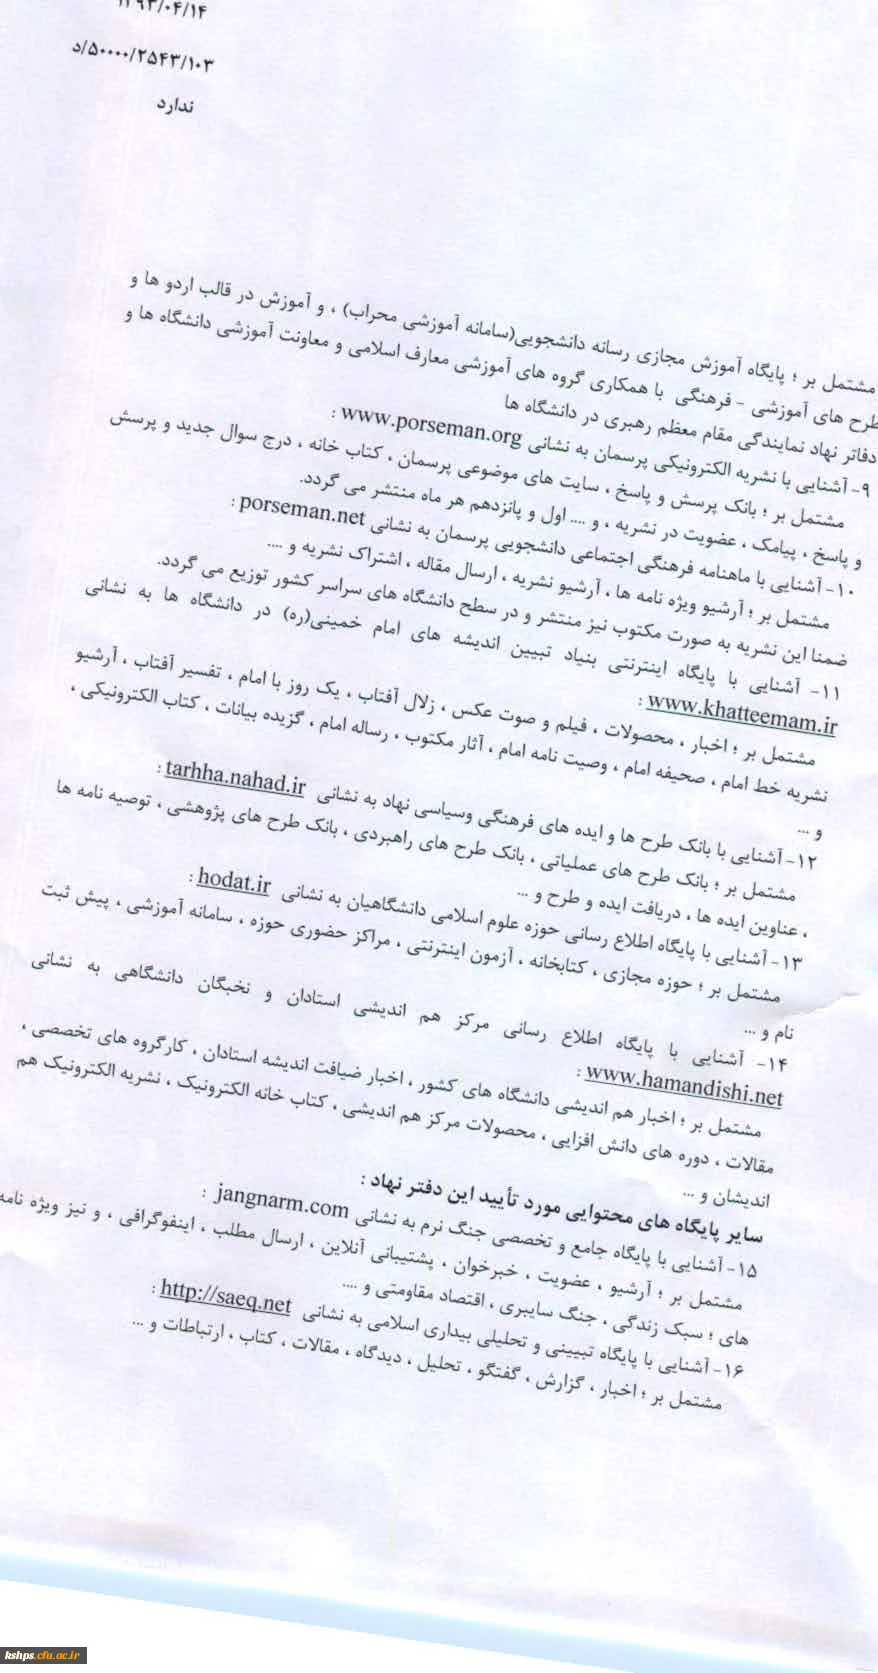 ۱۳۹۳/۰۴/۱۴
۵۰۰۰۰/۲۵۴۳/۱۰۳/د
ندارد
مشتمل بر ؛ پایگاه آموزش مجازی رسانه دانشجویی(سامانه آموزشی محراب) ، و آموزش در قالب اردو ها و
طرح های آموزشی - فرهنگی با همکاری گروه های آموزشی معارف اسلامی و معاونت آموزشی دانشگاه ها و
دفاتر نهاد نمایندگی مقام معظم رهبری در دانشگاه ها
۹- آشنایی با نشریه الکترونیکی پرسمان به نشانی www.porseman.org :
مشتمل بر ؛ بانک پرسش و پاسخ ، سایت های موضوعی پرسمان ، کتاب خانه ، درج سوال جدید و پرسش
و پاسخ ، پیامک ، عضویت در نشریه ، و .... اول و پانزدهم هر ماه منتشر می گردد.
۱۰- آشنایی با ماهنامه فرهنگی اجتماعی دانشجویی پرسمان به نشانی porseman.net :
مشتمل بر ؛ آرشیو ویژه نامه ها ، آرشیو نشریه ، ارسال مقاله ، اشتراک نشریه و ....
ضمنا این نشریه به صورت مکتوب نیز منتشر و در سطح دانشگاه های سراسر کشور توزیع می گردد.
۱۱- آشنایی با پایگاه اینترنتی بنیاد تبیین اندیشه های امام خمینی(ره) در دانشگاه ها به نشانی
www.khatteemam.ir :
مشتمل بر ؛ اخبار ، محصولات ، فیلم و صوت عکس ، زلال آفتاب ، یک روز با امام ، تفسیر آفتاب ، آرشیو
نشریه خط امام ، صحیفه امام ، وصیت نامه امام ، آثار مکتوب ، رساله امام ، گزیده بیانات ، کتاب الکترونیکی ،
و ...
۱۲- آشنایی با بانک طرح ها و ایده های فرهنگی وسیاسی نهاد به نشانی tarhha.nahad.ir :
مشتمل بر ؛ بانک طرح های عملیاتی ، بانک طرح های راهبردی ، بانک طرح های پژوهشی ، توصیه نامه ها
، عناوین ایده ها ، دریافت ایده و طرح و ...
۱۳- آشنایی با پایگاه اطلاع رسانی حوزه علوم اسلامی دانشگاهیان به نشانی hodat.ir :
مشتمل بر ؛ حوزه مجازی ، کتابخانه ، آزمون اینترنتی ، مراکز حضوری حوزه ، سامانه آموزشی ، پیش ثبت
نام و ...
۱۴- آشنایی با پایگاه اطلاع رسانی مرکز هم اندیشی استادان و نخبگان دانشگاهی به نشانی
www.hamandishi.net :
مشتمل بر ؛ اخبار هم اندیشی دانشگاه های کشور ، اخبار ضیافت اندیشه استادان ، کارگروه های تخصصی ،
مقالات ، دوره های دانش افزایی ، محصولات مرکز هم اندیشی ، کتاب خانه الکترونیک ، نشریه الکترونیک هم
اندیشان و ...
سایر پایگاه های محتوایی مورد تأیید این دفتر نهاد :
۱۵- آشنایی با پایگاه جامع و تخصصی جنگ نرم به نشانی jangnarm.com :
مشتمل بر ؛ آرشیو ، عضویت ، خبرخوان ، پشتیبانی آنلاین ، ارسال مطلب ، اینفوگرافی ، و نیز ویژه نامه
های ؛ سبک زندگی ، جنگ سایبری ، اقتصاد مقاومتی و ....
۱۶- آشنایی با پایگاه تبیینی و تحلیلی بیداری اسلامی به نشانی http://saeq.net :
مشتمل بر ؛ اخبار ، گزارش ، گفتگو ، تحلیل ، دیدگاه ، مقالات ، کتاب ، ارتباطات و ...
kshps.cfu.ac.ir